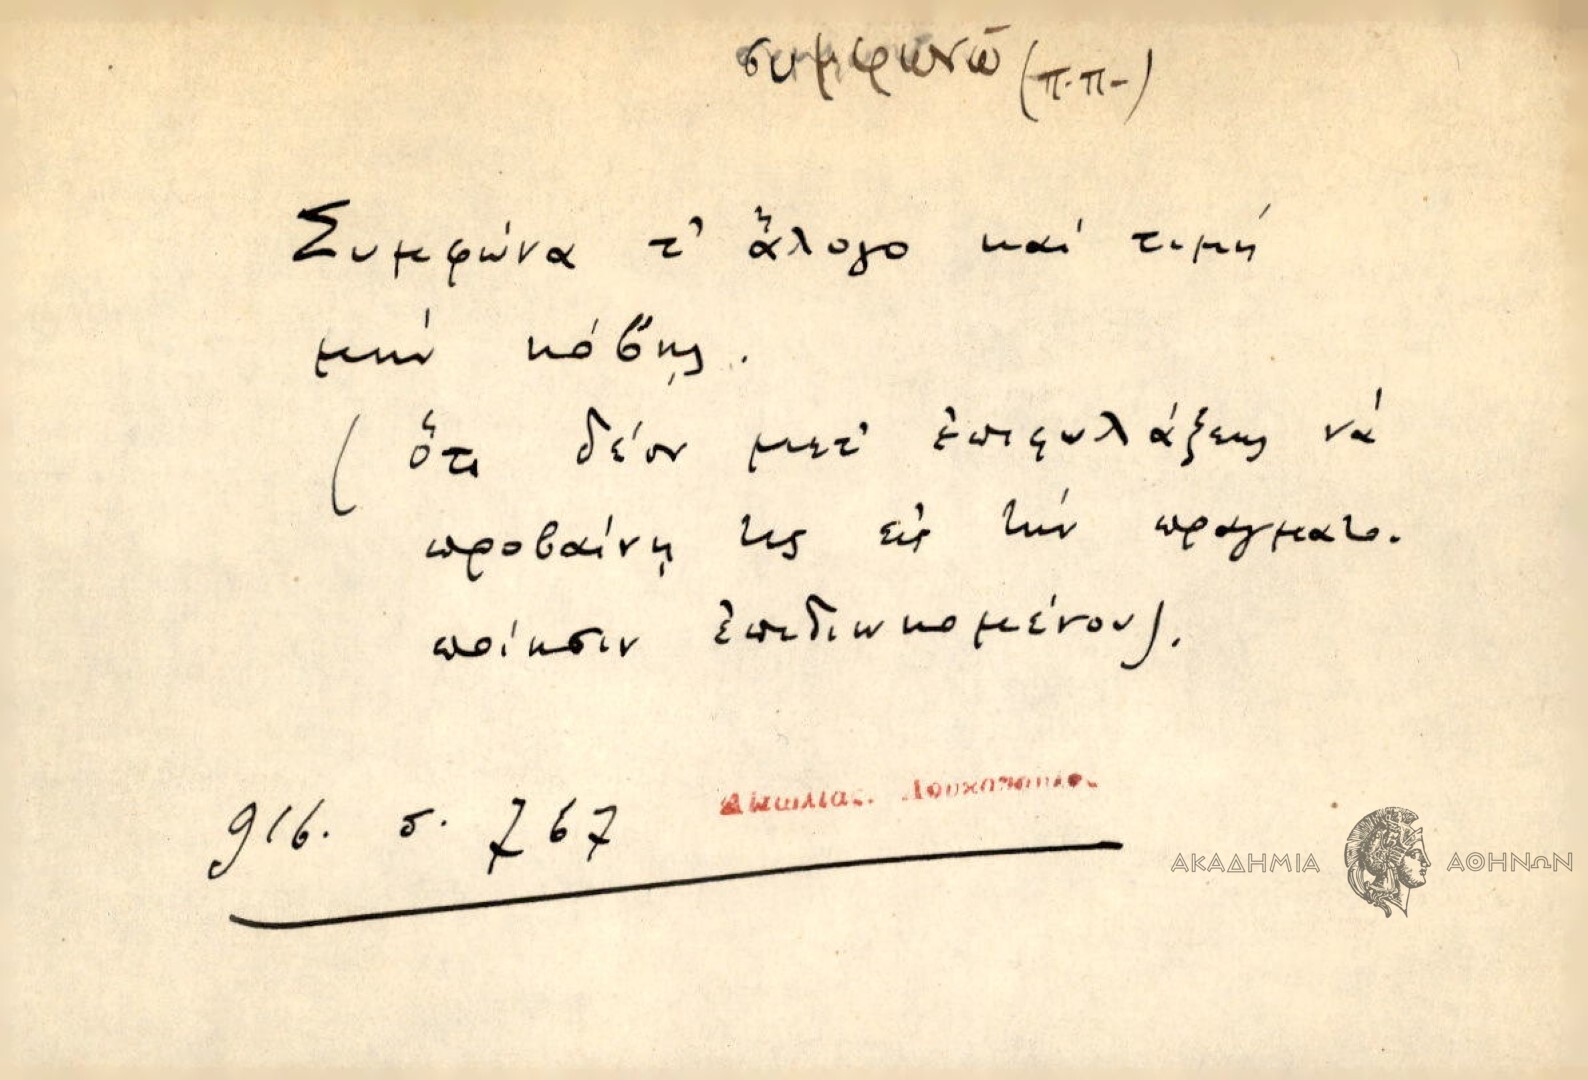 συμφωνῶ (π.π-)
Συμφώνα τ' ἄλογο καί τιμή
μήν κόβῃς.
(ὅτι δέον μετ' ἐπιφυλάξεως νά
προβαίνῃ τις εἰς τήν πραγματο-
ποίησιν ἐπιδιωκομένου).
916. σ. 767
Αἰτωλίας. Λουκόπουλος
ΑΚΑΔΗΜΙΑ ΑΘΗΝΩΝ